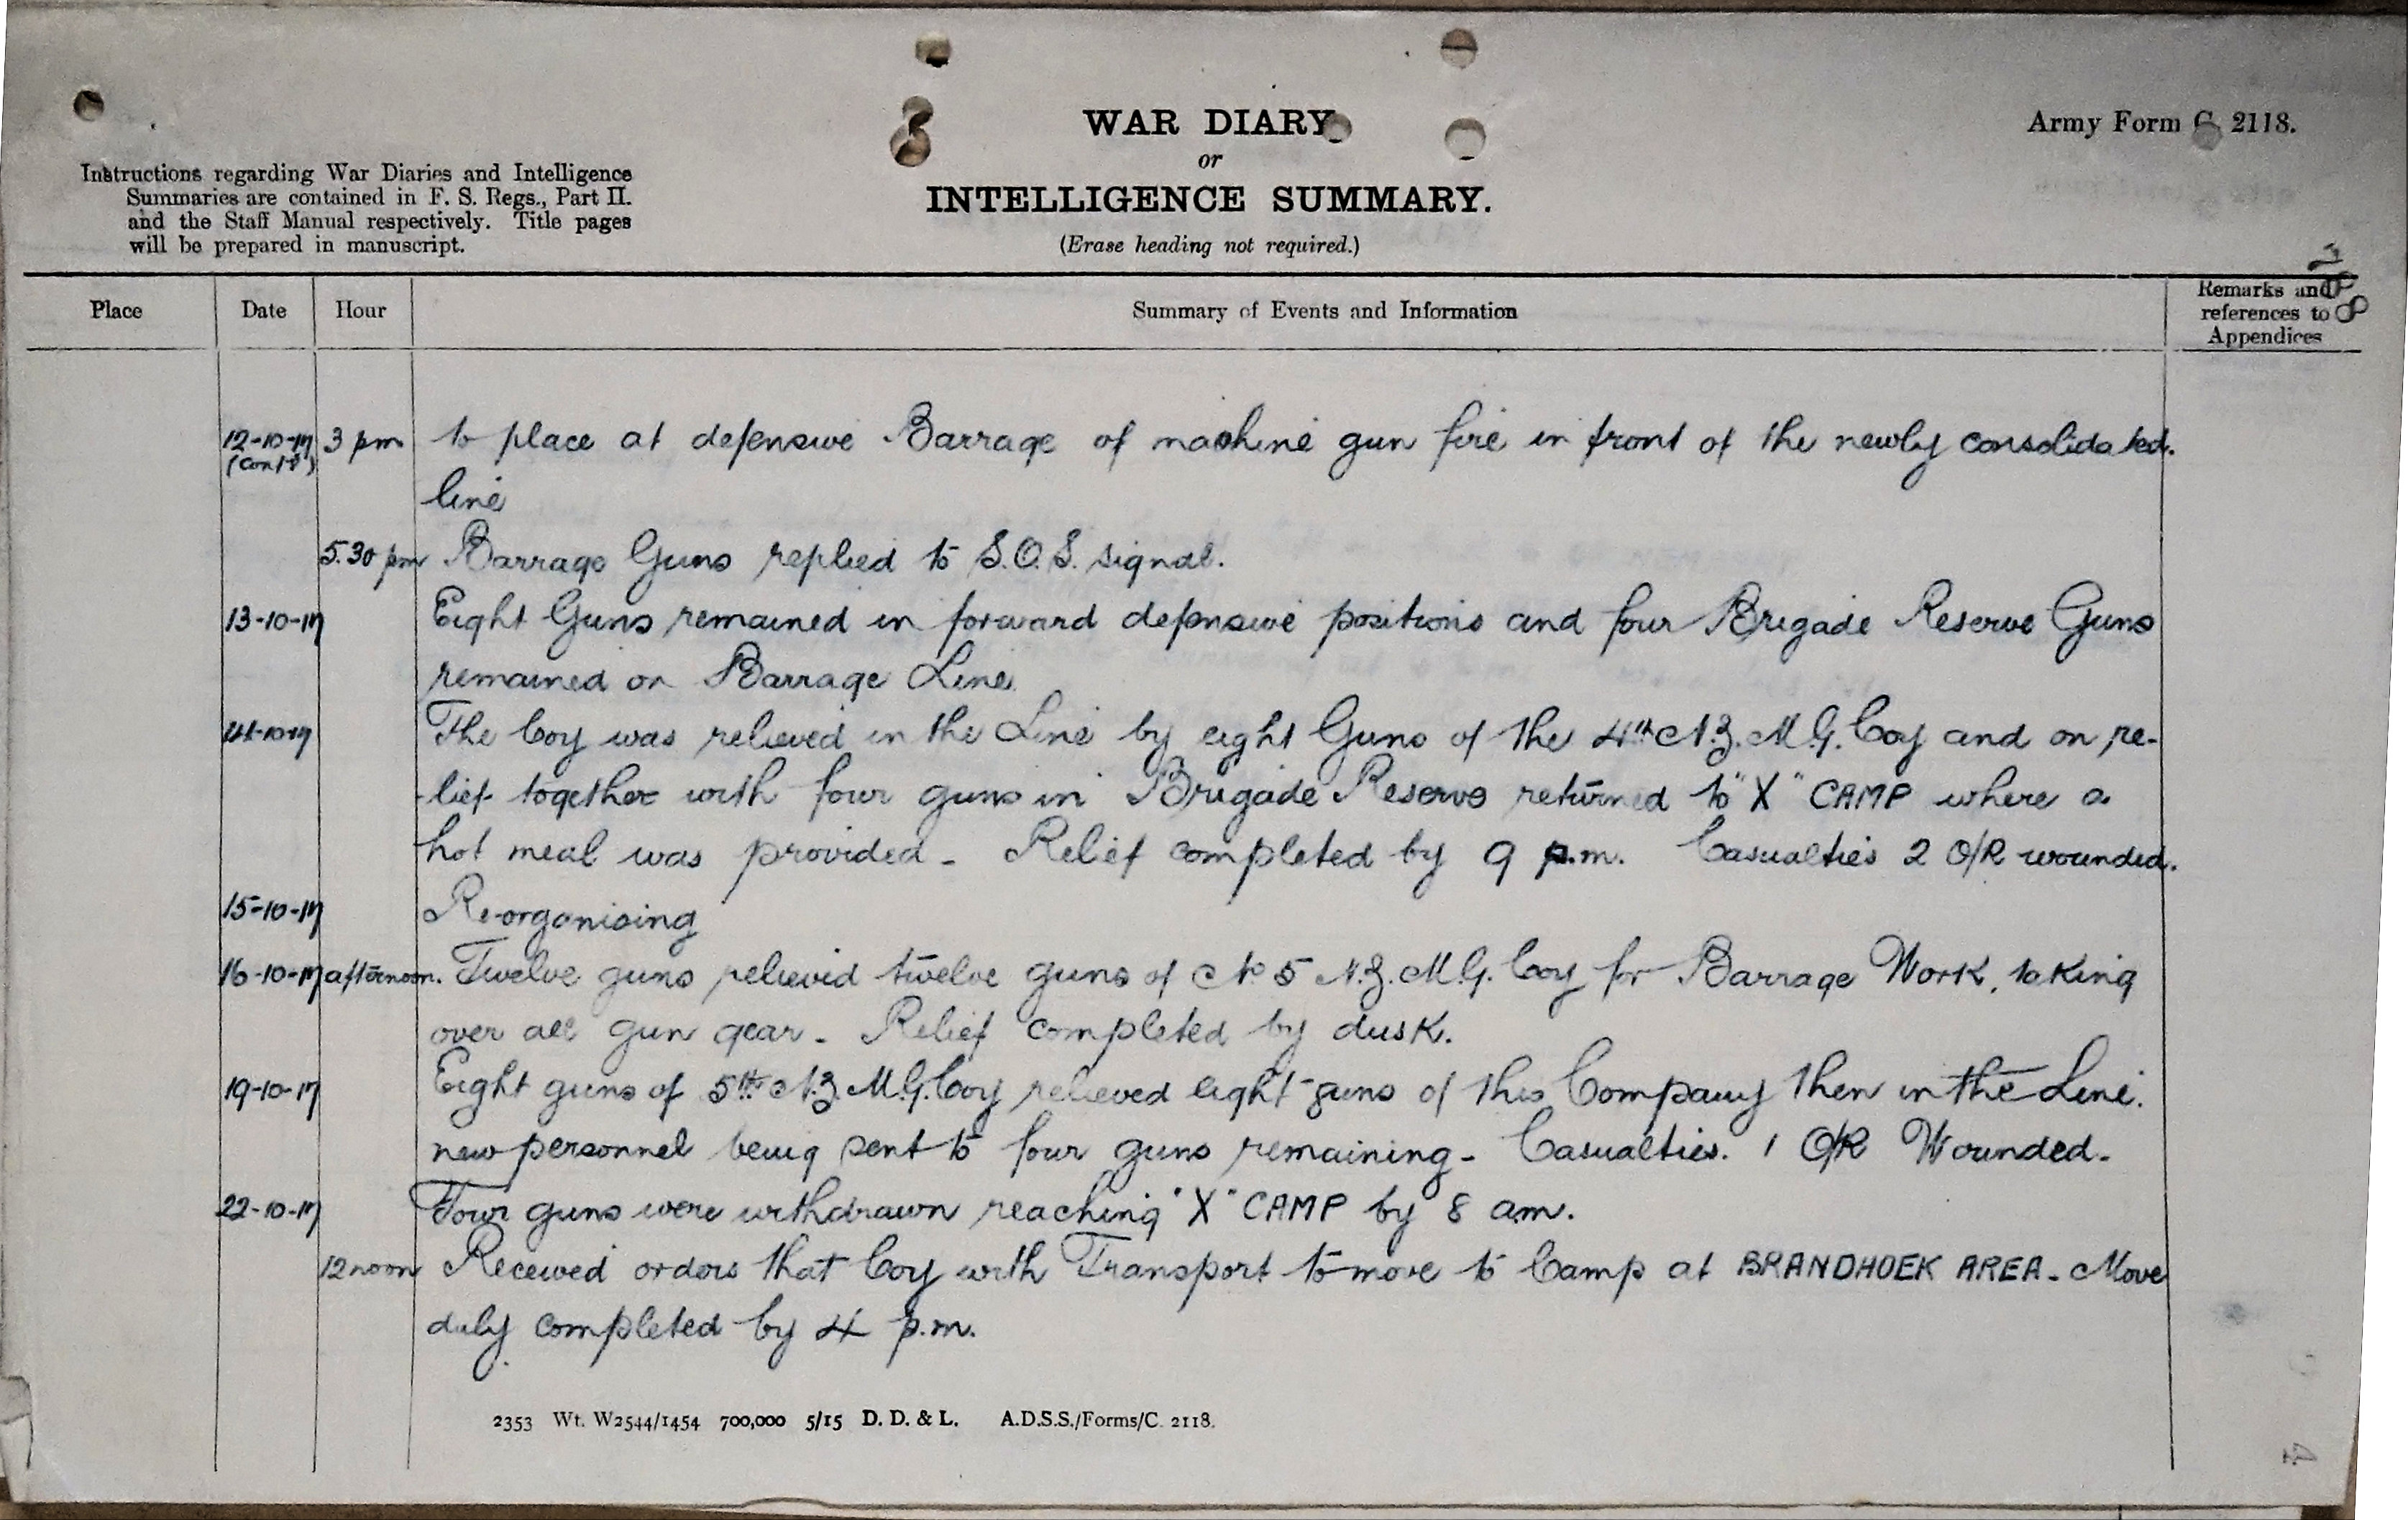 WAR DIARY
or
INTELLIGENCE SUMMARY.
(Erase heading not required.)
Army Form C. 2118.
Instructions regarding War Diaries and Intelligence
Summaries are contained in F. S. Regs., Part II.
and the Staff Manual respectively. Title pages
will be prepared in manuscript.
Place Date Hour Summary of Events and Information Remarks and
references to
Appendices
12-10-17 3 pm to place at defensive Barrage of machine gun fire in front of the newly consolidated.
(Cont'd) line
5.30 pm Barrage Guns replied to S.O.S. signal.
13-10-17 Eight Guns remained in forward defensive positions and four Brigade Reserve Guns
remained on Barrage Line
14-10-17 The Coy was relieved in the Line by eight Guns of the 4th N.Z. M.G. Coy and on re-
-lief together with four guns in Brigade Reserve returned to "X" CAMP where a
hot meal was provided - Relief completed by 9 p.m. Casualties 2 O/R wounded.
15-10-17 Re-organising
16-10-17 afternoon. Twelve guns relieved twelve guns of No 5 N.Z. M.G. Coy for Barrage Work, taking
over all gun gear - Relief completed by dusk.
19-10-17 Eight guns of 5th N.Z. M.G. Coy relieved eight guns of this Company then in the Line.
new personnel being sent to four guns remaining - Casualties. 1 O/R Wounded.
22-10-17 Four guns were withdrawn reaching "X" CAMP by 8 am.
12 noon Received orders that Coy with Transport to move to Camp at BRANDHOEK AREA - Move
duly completed by 4 p.m.
2353 Wt. W2544/1454 700,000 5/15 D. D. & L. A.D.S.S./Forms/C. 2118.